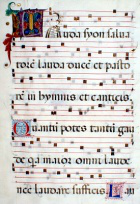 Lauda syon salua
torē lauda ducē et pasto
rē in hymnis et canticis.
Quantū potes tantū gau
de q̄a maior omni laude
nec laudare sufficis. Lau